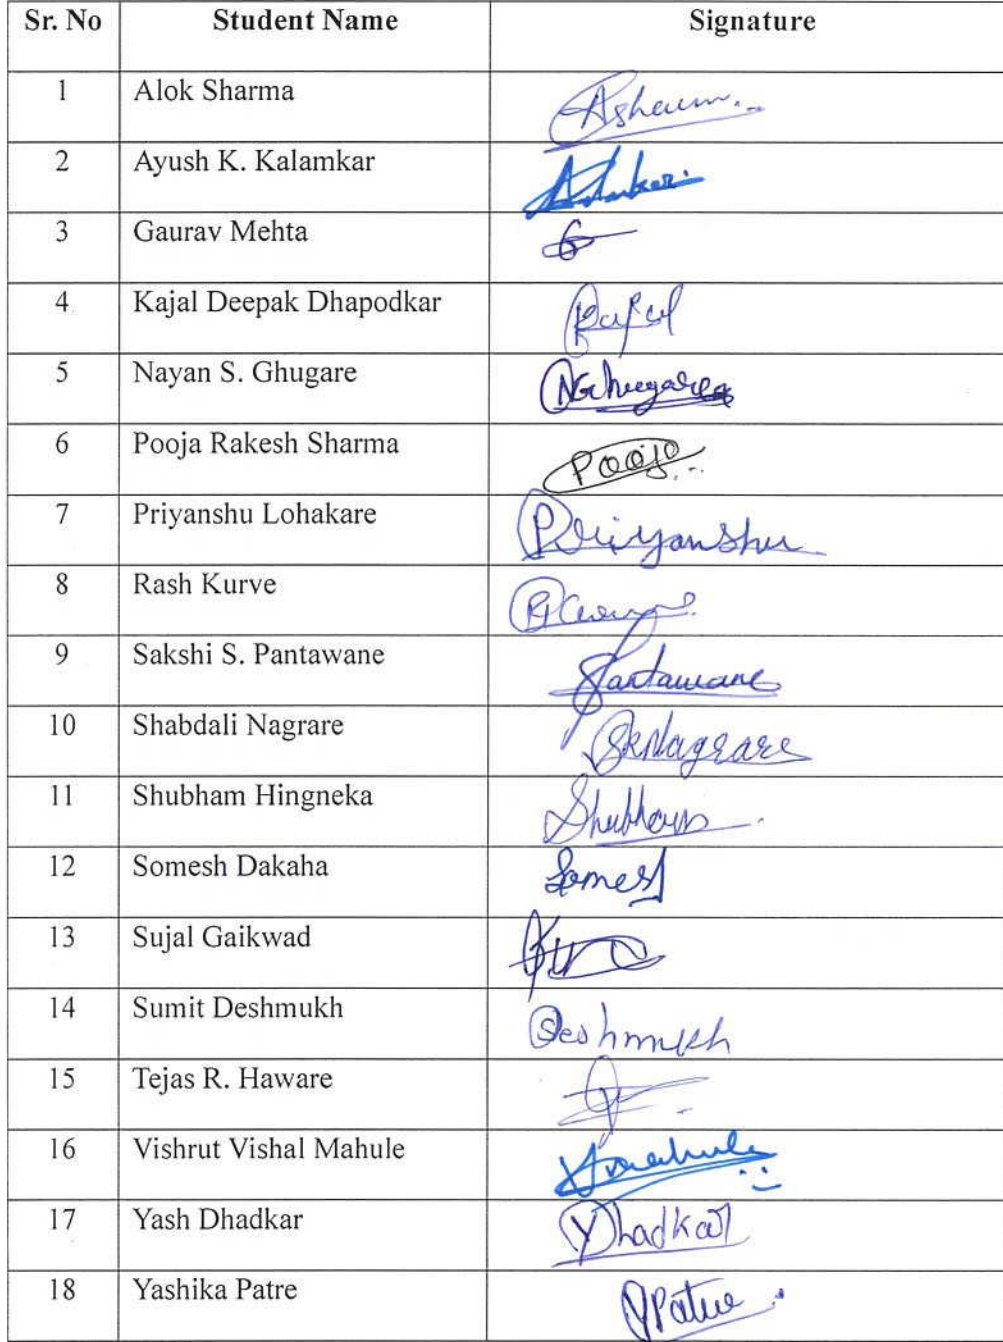 Sr. No Student Name Signature
1 Alok Sharma Asharm..
2 Ayush K. Kalamkar
3 Gaurav Mehta G
4 Kajal Deepak Dhapodkar Kajal
5 Nayan S. Ghugare NGhugare
6 Pooja Rakesh Sharma Pooja
7 Priyanshu Lohakare Priyanshu
8 Rash Kurve
9 Sakshi S. Pantawane SPantawane
10 Shabdali Nagrare SRNagrare
11 Shubham Hingneka Shubham
12 Somesh Dakaha Somesh
13 Sujal Gaikwad
14 Sumit Deshmukh SDeshmukh
15 Tejas R. Haware
16 Vishrut Vishal Mahule Vmahule
17 Yash Dhadkar YDhadkar
18 Yashika Patre YPatre